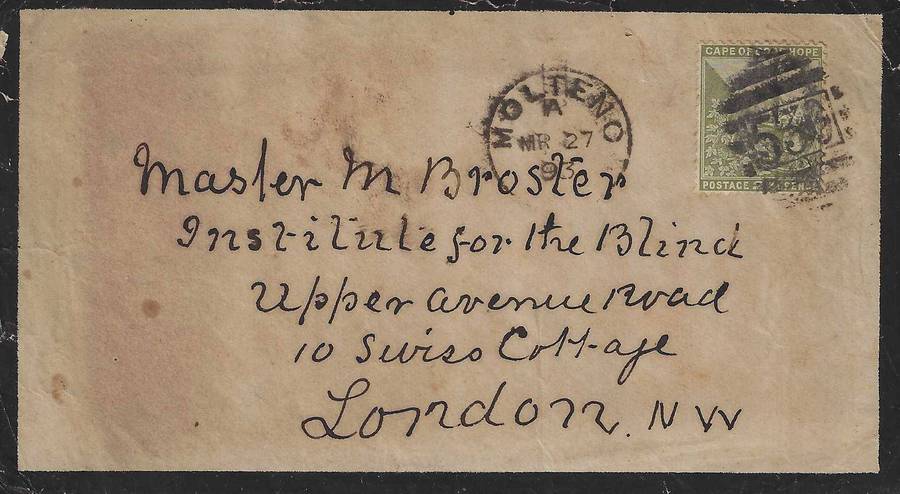 CAPE OF GOOD HOPE
POSTAGE
MOLTENO
A
MR 27
93
Master M Broster
Institute for the Blind
Upper avenue Road
10 Swiss Cottage
London. N W